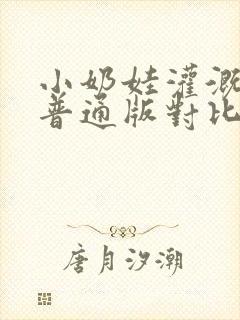 小奶娃灌溉
普通版對比
唐月汐潮